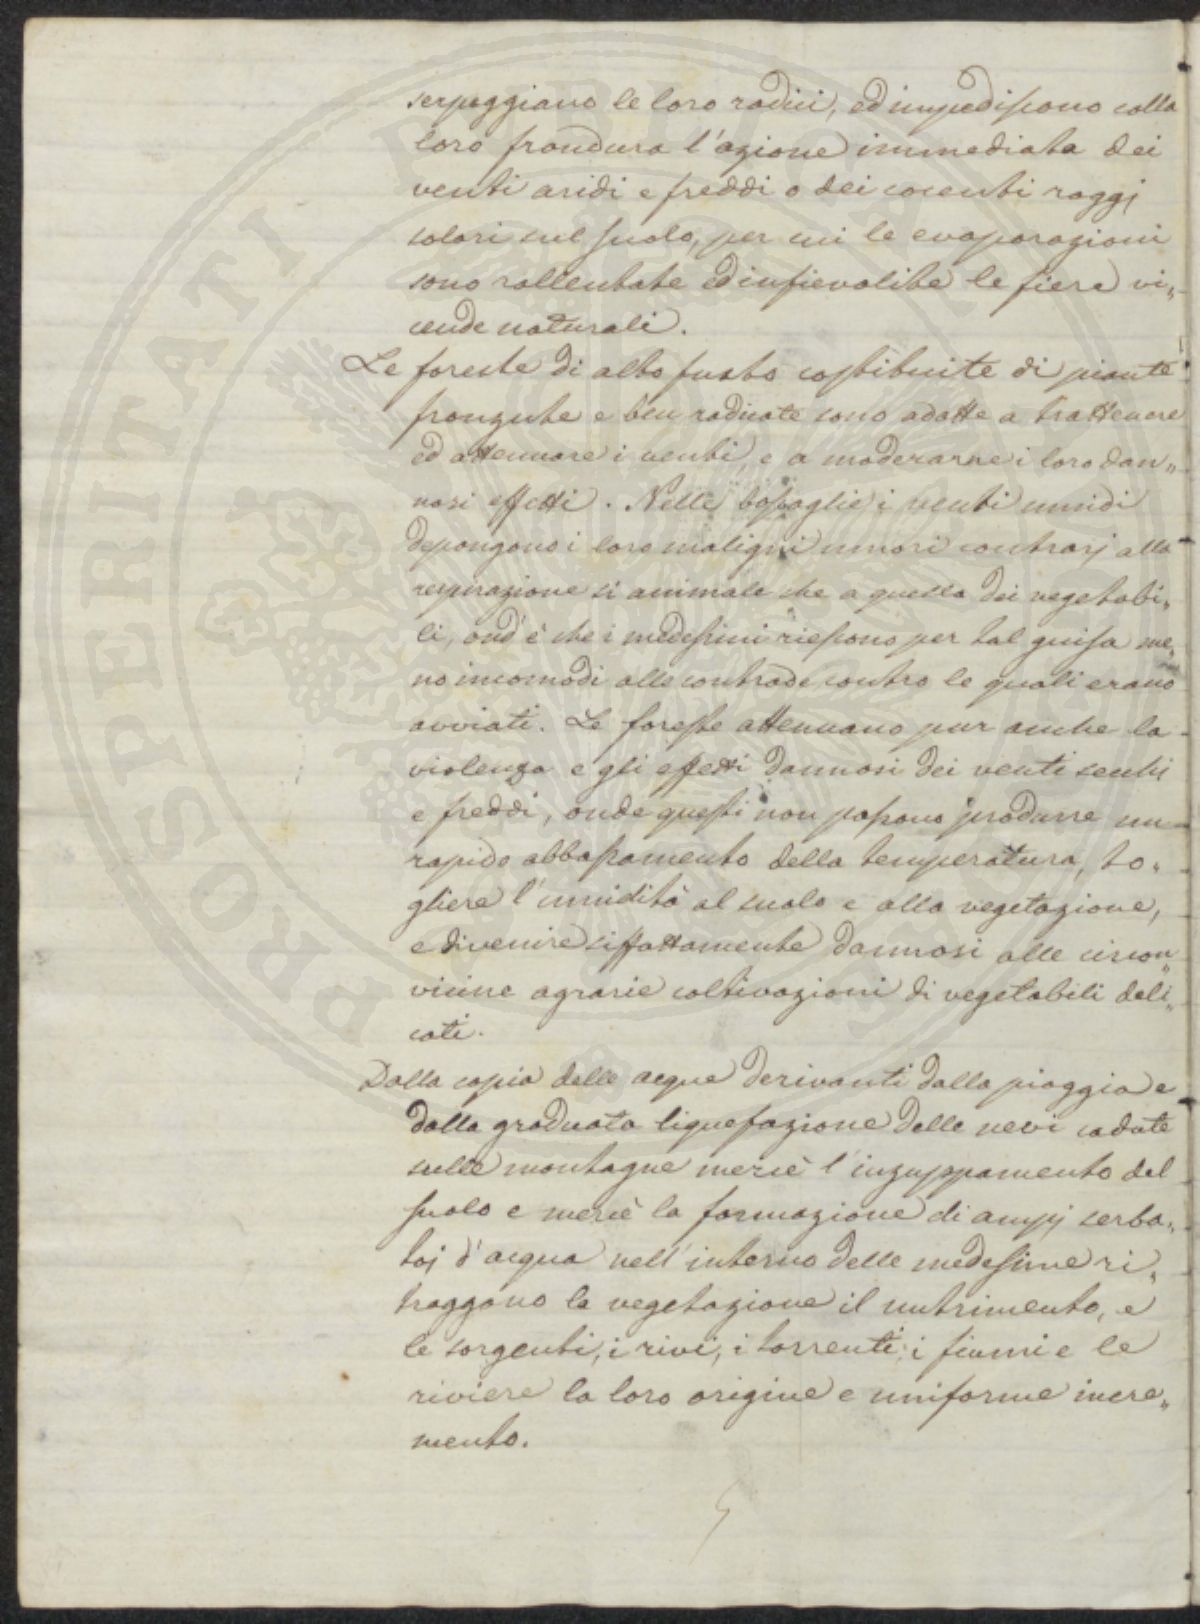 serpeggiano le loro radici, ed impediscono colla
loro frondura l'azione immediata dei
venti aridi e freddi o dei cocenti raggj
solari sul suolo, per cui le evaporazioni
sono rallentate ed infievolite le fiere vi„
cende naturali.
Le foreste di alto fusto costituite di piante
fronzute e ben radicate sono adatte a trattenere
ed attenuare i venti, e a moderarne i loro dan„
nosi effetti. Nelle boscaglie i venti umidi
depongono i loro maligni umori contrarj alla
respirazione sì animale che a quella dei vegetabi„
li, ond'è che i medesimi riescono per tal guisa me„
no incomodi alle contrade contro le quali erano
avviati. Le foreste attenuano pur anche la
violenza e gli effetti dannosi dei venti secchi
e freddi, onde questi non possono produrre un
rapido abbassamento della temperatura, to„
gliere l'umidità al suolo e alla vegetazione,
e divenire siffattamente dannosi alle circon„
vicine agrarie coltivazioni di vegetabili deli„
cati.
Dalla copia delle acque derivanti dalla pioggia e
dalla graduata liquefazione delle nevi cadute
sulle montagne mercè l'inzuppamento del
suolo e mercè la formazione di ampj serba„
toj d'acqua nell'interno delle medesime ri„
traggono la vegetazione il nutrimento, e
le sorgenti, i rivi, i torrenti, i fiumi e le
riviere la loro origine e uniforme incre„
mento.
PROSPERITATI PUBLICAE